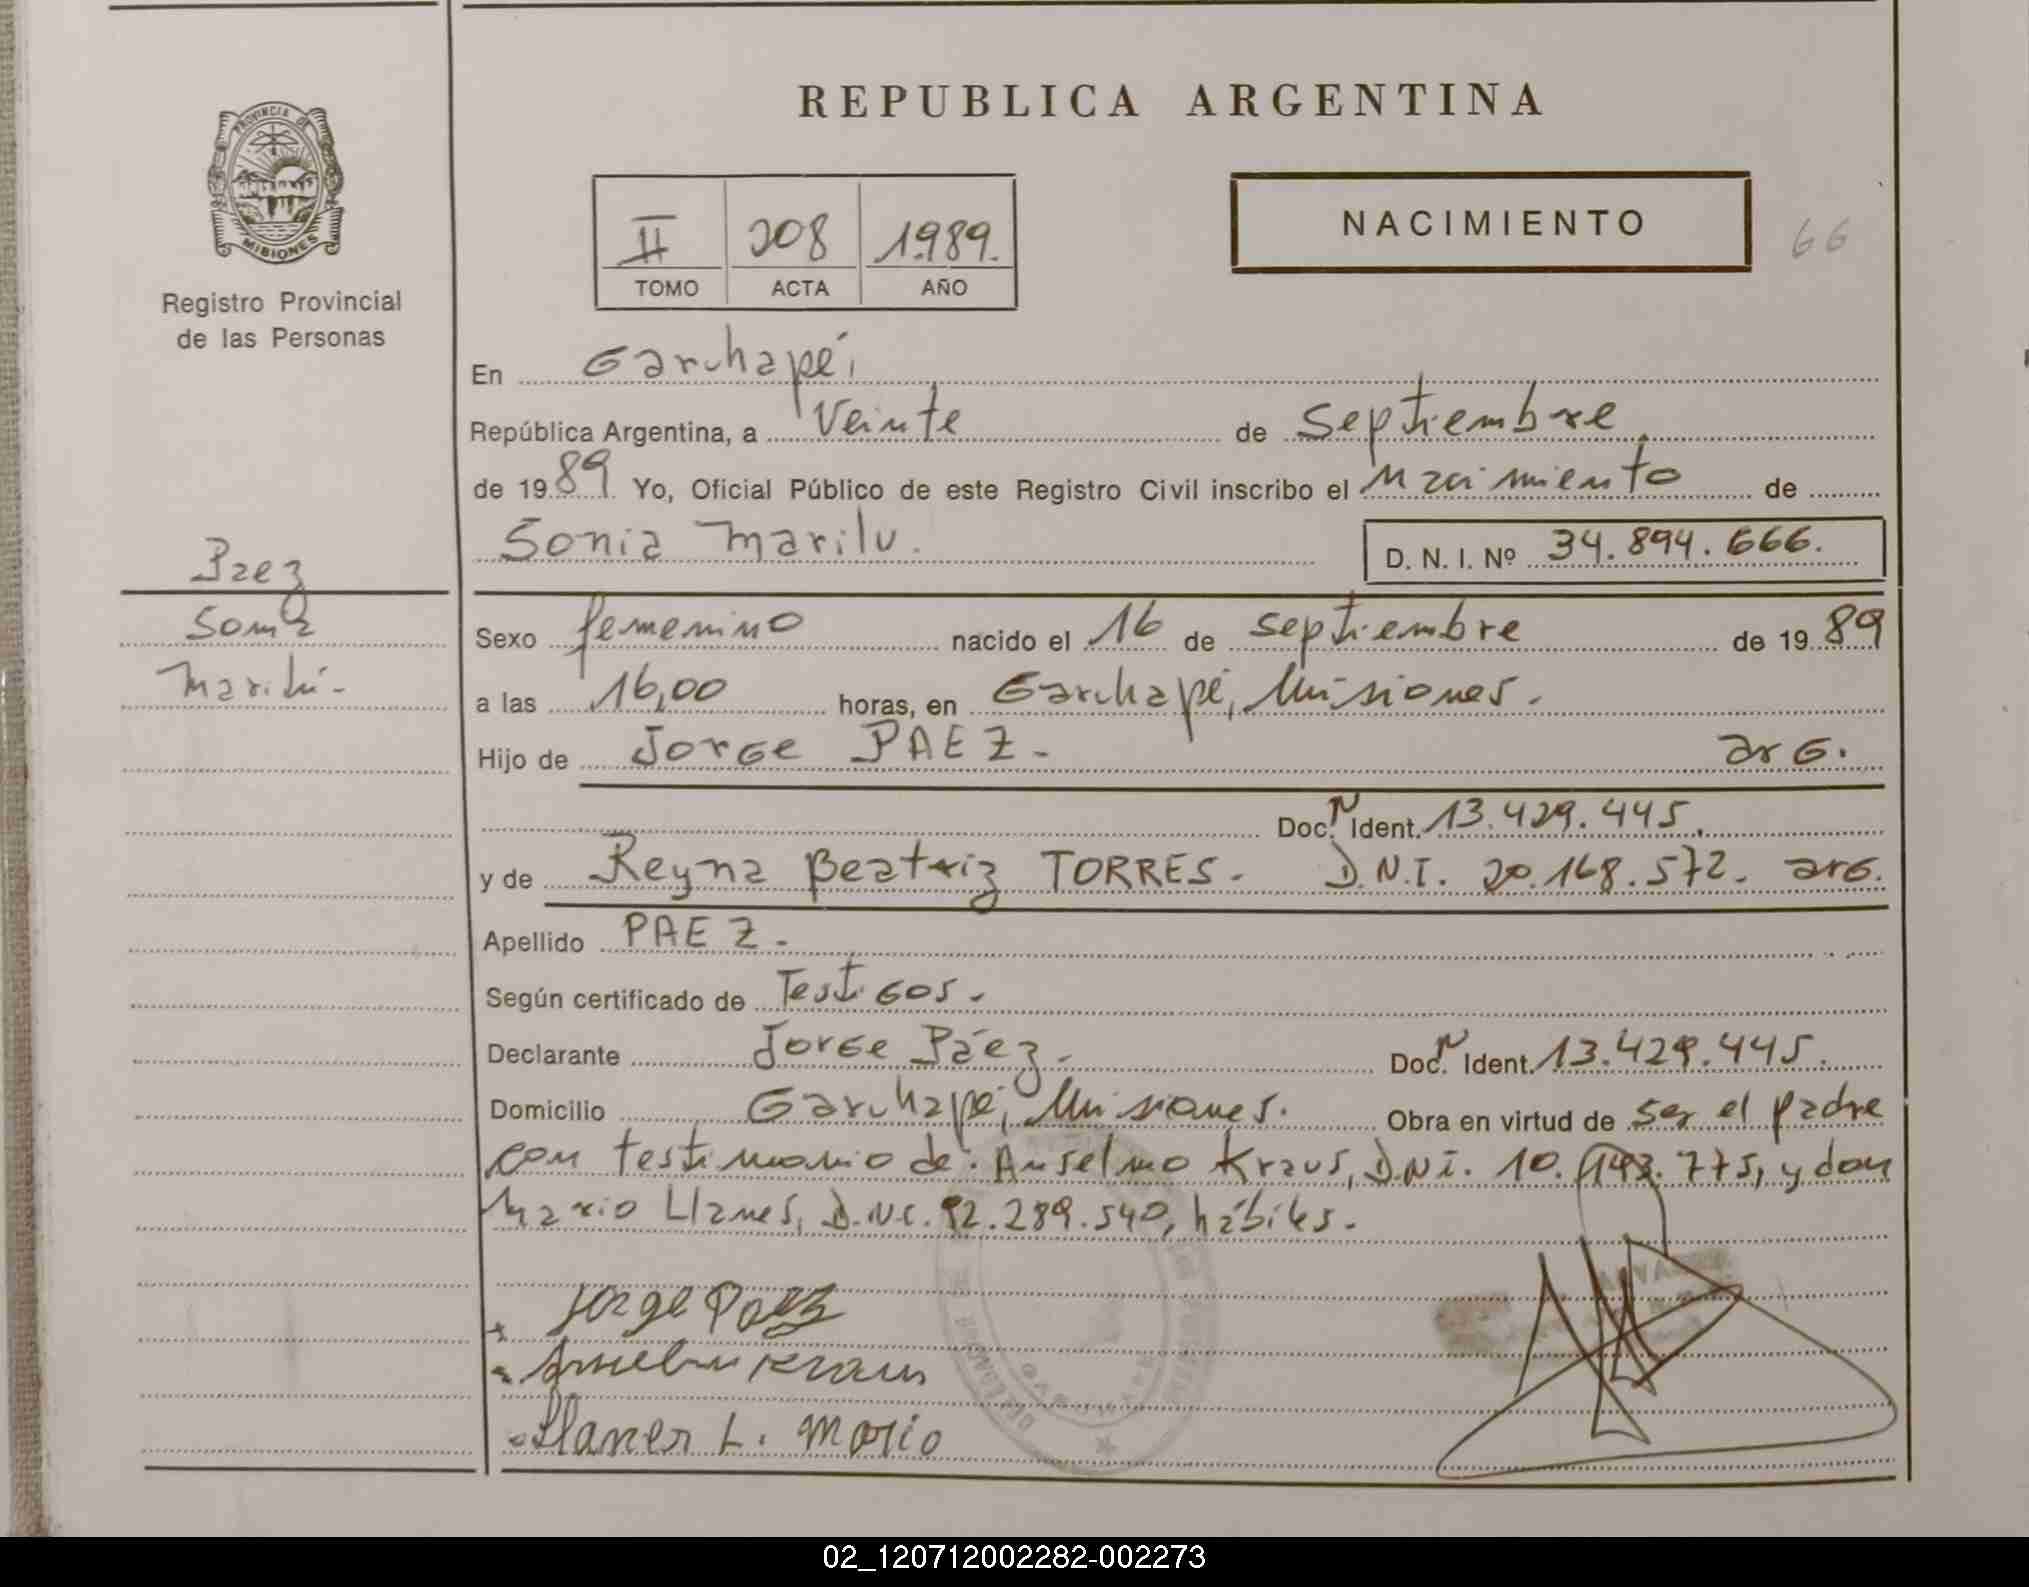 REPUBLICA ARGENTINA
PROVINCIA DE
MISIONES
Registro Provincial
de las Personas
II 208 1989.
TOMO ACTA AÑO
NACIMIENTO
66
En Garuhapé,
República Argentina, a Veinte de Septiembre
de 1989 Yo, Oficial Público de este Registro Civil inscribo el Nacimiento de
Sonia Marilu. D. N. I. Nº 34.894.666.
Paez
Sonia
Marilú-
Sexo femenino nacido el 16 de septiembre de 1989
a las 16,00 horas, en Garuhapé, Misiones.
Hijo de Jorge PAEZ- arg.
Doc. N Ident. 13.429.445.
y de Reyna Beatriz TORRES- D.N.I. 20.168.572- arg.
Apellido PAEZ-
Según certificado de Testigos-
Declarante Jorge Páez- Doc. N Ident. 13.429.445.
Domicilio Garuhapé, Misiones. Obra en virtud de ser el padre
con testimonio de: Anselmo Kraus, D.N.I. 10.143.775, y don
Mario Llanes, D.N.I. 92.289.540, hábiles-
Jorge Paez
Anselmo Kraus
Llanes L. Mario
02_120712002282-002273